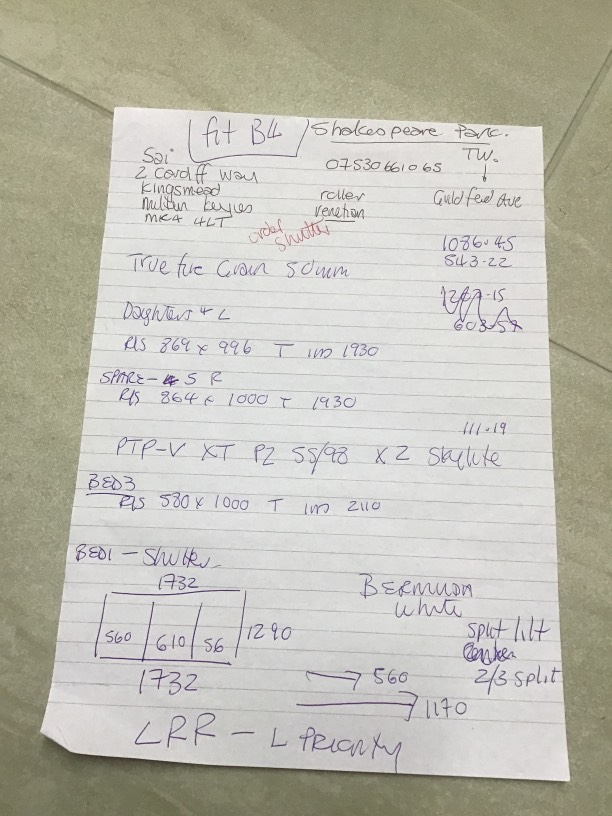 fit B4
Shakespeare Parc.
TW.
Sai
2 Cardiff Way
Kingsmead
Milton Keynes
MK4 4LT
07530661065
roller
venetian
order
shutter
Ave
1086.45
543.22
True Grain 50mm
603.57
Daghters 4 L
R/S 869 x 996 T 1930
SPARE - 5 R
R/S 864 x 1000 T 1930
111.19
PTP-V XT P2 55/98 x 2 Skylite
BED3
R/S 580 x 1000 T 2110
BED1 - Shutter
1732
560 610 56 1290
1732
BERMUDA
White
split tilt
2/3 split
560
1170
LRR - L PRIORITY